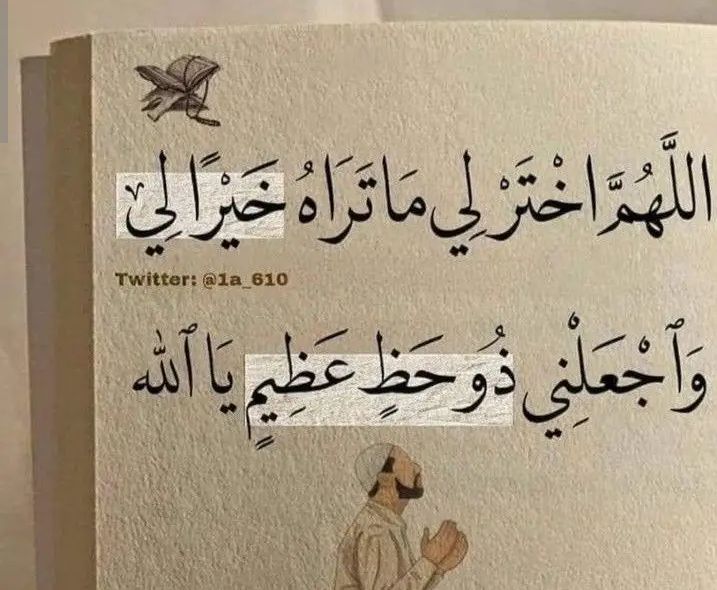 اللَّهُمَّ اخْتَرْ لِي مَا تَرَاهُ خَيْرًا لِي
Twitter: @1a_610
وَٱجْعَلْنِي ذُو حَظٍ عَظِيمٍ يَا ٱللّٰه